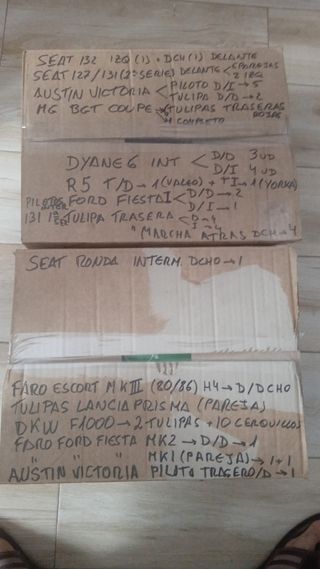 SEAT 132 IZQ (1) + DCH (1) DELANTE
SEAT 127/131 (2ª SERIE) DELANTE < 6 PAREJAS
2 IZQ
AUSTIN VICTORIA < PILOTO D/I → 5
TULIPA D/D → 2
MG BGT COUPE < TULIPAS TRASERAS ROJAS
" COMPLETO
DYANE 6 INT < D/D 3 UD
D/I 4 UD
R5 T/D → 1 (VALEO) + TI → 1 (YORKA)
FORD FIESTA I < D/D → 2
D/I → 1
131 TULIPA TRASERA < D → 4
I → 4
" MARCHA ATRAS DCH → 4
SEAT RONDA INTERM. DCHO → 1
FARO ESCORT MK III (80/86) H4 → D/DCHO
TULIPAS LANCIA PRISMA (PAREJA)
DKW F1000 → 2 TULIPAS + 10 CERQUILLOS
FARO FORD FIESTA MK2 → D/D → 1
" " " MK1 (PAREJA) → 1 + 1
AUSTIN VICTORIA PILOTO TRASERO/D → 1